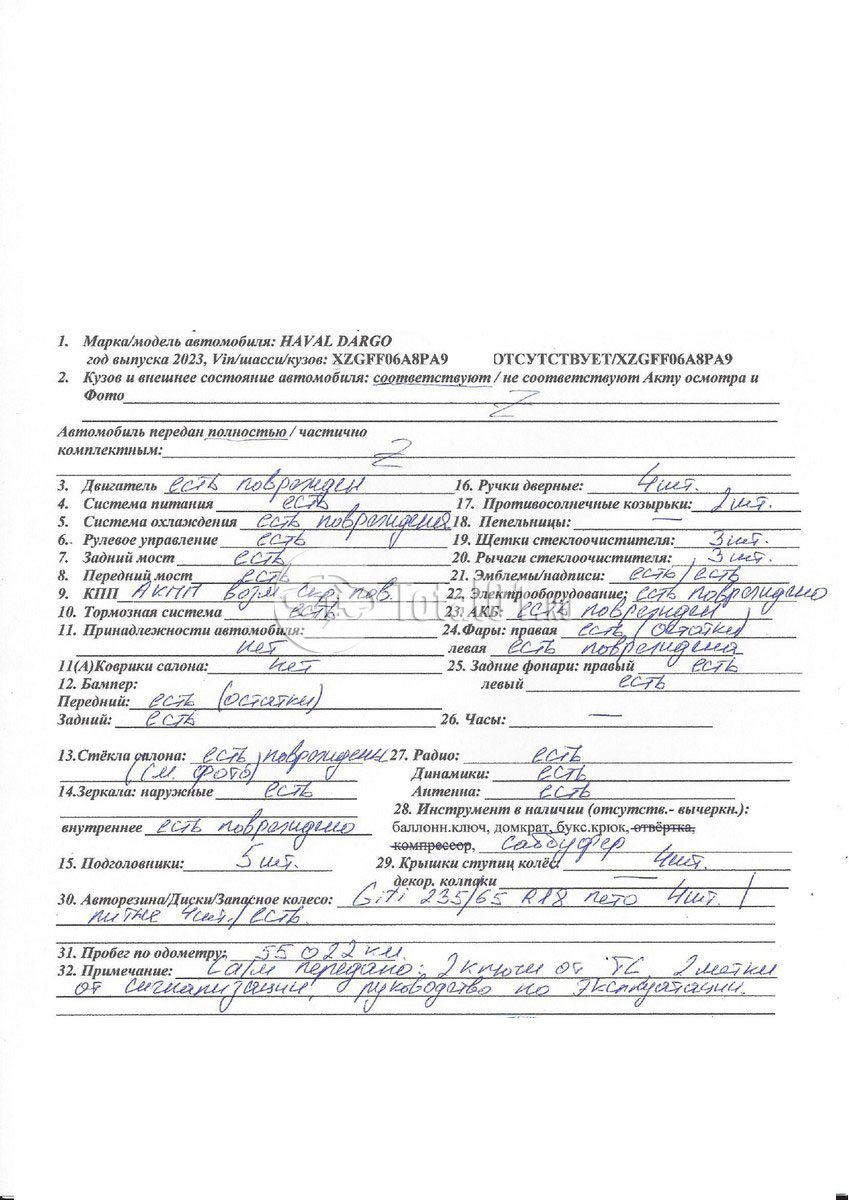 1. Марка/модель автомобиля: HAVAL DARGO
год выпуска 2023, Vin/шасси/кузов: XZGFF06A8PA9 ОТСУТСТВУЕТ/XZGFF06A8PA9
2. Кузов и внешнее состояние автомобиля: соответствуют / не соответствуют Акту осмотра и
Фото
Z
Автомобиль передан полностью / частично
комплектным: Z
3. Двигатель есть поврежден 16. Ручки дверные: 4 шт.
4. Система питания есть 17. Противосолнечные козырьки: 2 шт.
5. Система охлаждения есть повреждена 18. Пепельницы: —
6. Рулевое управление есть 19. Щетки стеклоочистителя: 3 шт.
7. Задний мост есть 20. Рычаги стеклоочистителя: 3 шт.
8. Передний мост есть 21. Эмблемы/надписи: есть/есть
9. КПП АКПП возм скр. пов. 22. Электрооборудование: есть повреждено
10. Тормозная система есть 23. АКБ: есть поврежден
11. Принадлежности автомобиля: 24. Фары: правая есть (остатки)
нет левая есть повреждена
11(А)Коврики салона: нет 25. Задние фонари: правый есть
12. Бампер: левый есть
Передний: есть (остатки)
Задний: есть 26. Часы: —
13.Стёкла салона: есть повреждены 27. Радио: есть
(см. фото) Динамики: есть
14.Зеркала: наружные есть Антенна: есть
28. Инструмент в наличии (отсутств.- вычеркн.):
внутреннее есть повреждено баллонн.ключ, домкрат, букс.крюк, отвёртка,
компрессор, сабвуфер
15. Подголовники: 5 шт. 29. Крышки ступиц колёс: 4 шт.
декор. колпаки —
30. Авторезина/Диски/Запасное колесо: Giti 235/65 R18 лето 4 шт. /
литые 4 шт./ есть.
31. Пробег по одометру: 55022 км.
32. Примечание: С а/м передано: 2 ключи от ТС, 2 метки
от сигнализации, руководство по эксплуатации.